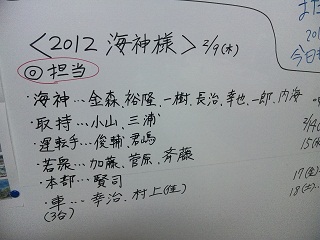 <2012 海神様> 2/9(木)
◎担当
・海神…金森、裕隆、一樹、長治、幸也、一郎、内海
・取持…小山、三浦
・運転手…俊輔、君嶋
・若衆…加藤、菅原、斉藤
・本部…賢司
・車…幸治、村上(佳)
(3台)
また
201
今日も
2/4(
15(
17(金)
18(土)